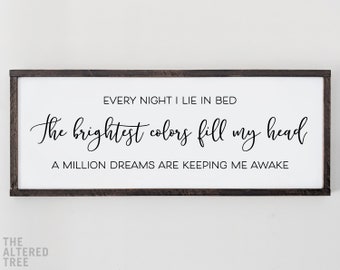 EVERY NIGHT I LIE IN BED
The brightest colors fill my head
A MILLION DREAMS ARE KEEPING ME AWAKE
THE
ALTERED
TREE